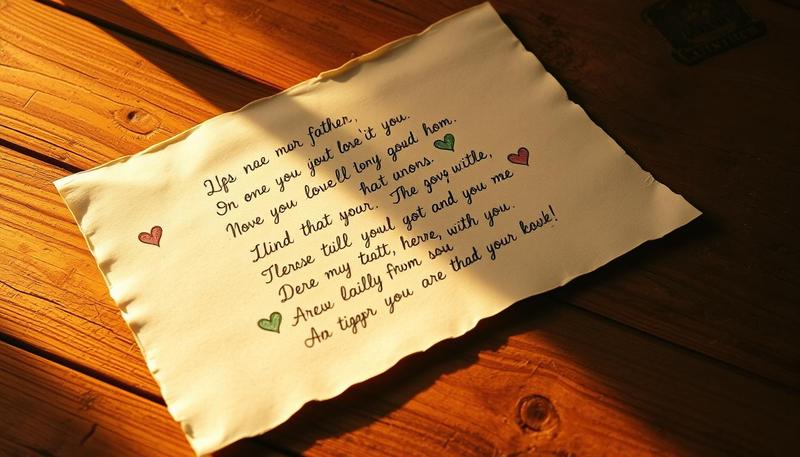 Ups nae mar father,
In one you jout lose'it you.
Nove you lovell lony goud hom.
hat unons.
Ilind that your. The govg witle,
Tlercse till youl got and you me
Dere my tiatt, herre, with you.
Areu lailly frwm sou
An tiggr you are thad your